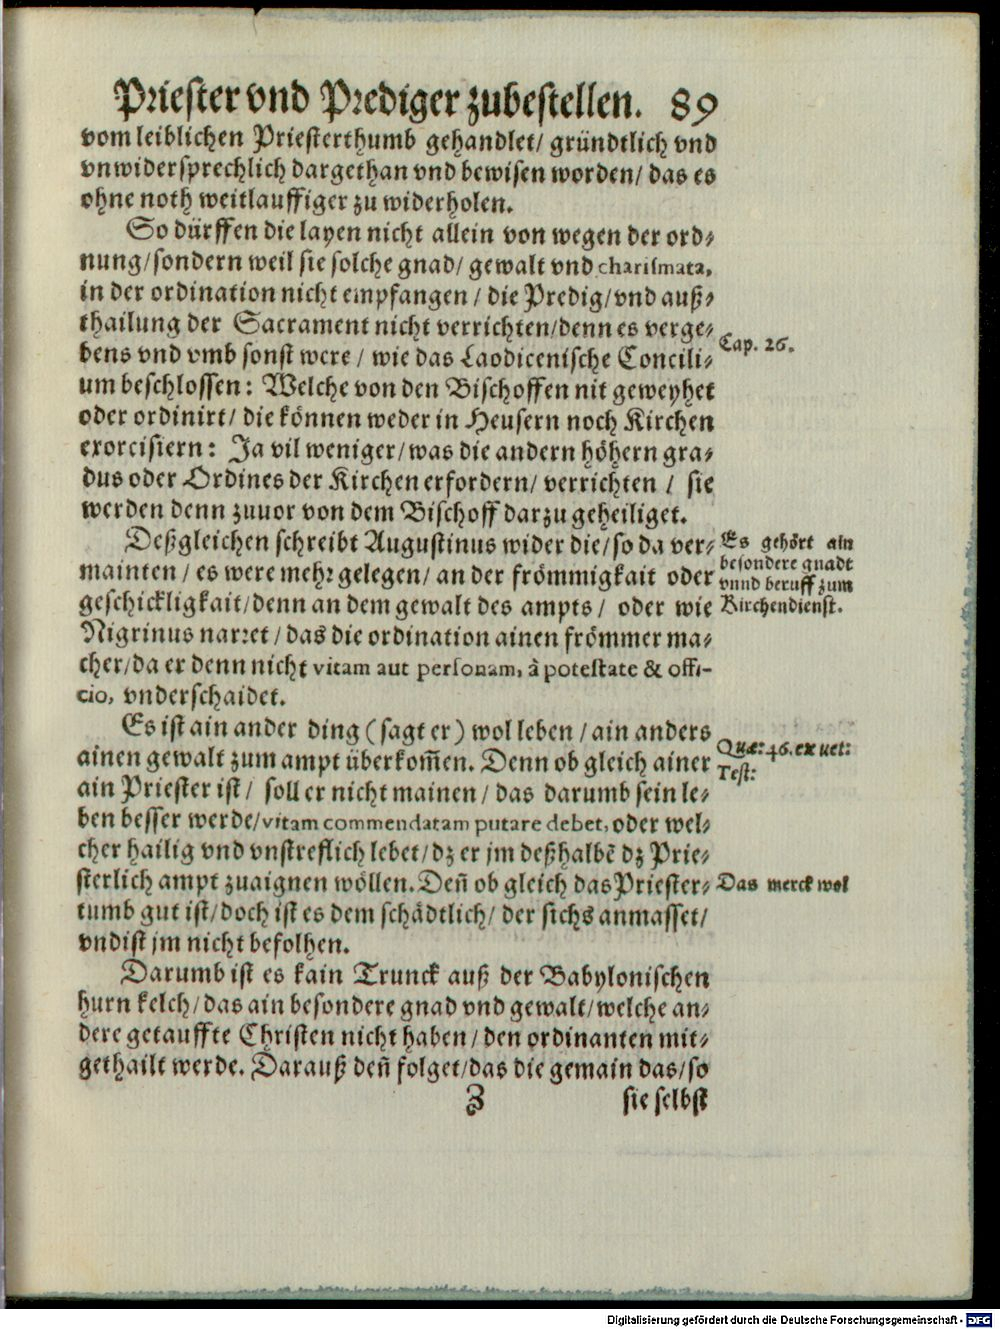 Priester vnd Prediger zubestellen. 89
vom leiblichen Priesterthumb gehandlet/ gründtlich vnd
vnwidersprechlich dargethan vnd bewisen worden/ das es
ohne noth weitlauffiger zu widerholen.
So dürffen die layen nicht allein von wegen der ord⸗
nung/sondern weil sie solche gnad/ gewalt vnd charismata,
in der ordination nicht empfangen/ die Predig/vnd auß⸗
thailung der Sacrament nicht verrichten/denn es verge⸗
bens vnd vmb sonst were/ wie das Laodicenische Concili⸗
Cap. 26.
um beschlossen: Welche von den Bischoffen nit geweyhet
oder ordinirt/ die können weder in Heusern noch Kirchen
exorcisiern: Ja vil weniger/was die andern höhern gra⸗
dus oder Ordines der Kirchen erfordern/ verrichten/ sie
werden denn zuuor von dem Bischoff darzu geheiliget.
Deßgleichen schreibt Augustinus wider die/so da ver⸗
mainten/ es were mehr gelegen/ an der frömmigkait oder
geschickligkait/denn an dem gewalt des ampts/ oder wie
Nigrinus narret/das die ordination ainen frömmer ma⸗
cher/da er denn nicht vitam aut personam, à potestate & offi-
cio, vnderschaidet.
Es gehört ain
besondere gnadt
vnnd beruff zum
Kirchendienst.
Es ist ain ander ding (sagt er) wol leben/ain anders
ainen gewalt zum ampt überkom̃en. Denn ob gleich ainer
ain Priester ist/ soll er nicht mainen/ das darumb sein le⸗
ben besser werde/vitam commendatam putare debet, oder wel⸗
cher hailig vnd vnstreflich lebet/dz er jm deßhalbẽ dz Prie⸗
sterlich ampt zuaignen wöllen. Deñ ob gleich das Priester⸗
tumb gut ist/doch ist es dem schädtlich/ der sichs anmasset/
vnd ist jm nicht befolhen.
Quæ: 46. ex uet:
Test:
Das merck wol
Darumb ist es kain Trunck auß der Babylonischen
hurn kelch/das ain besondere gnad vnd gewalt/welche an⸗
dere getauffte Christen nicht haben/den ordinanten mit⸗
gethailt werde. Darauß deñ folget/das die gemain das/so
Z sie selbst
Digitalisierung gefördert durch die Deutsche Forschungsgemeinschaft - DFG